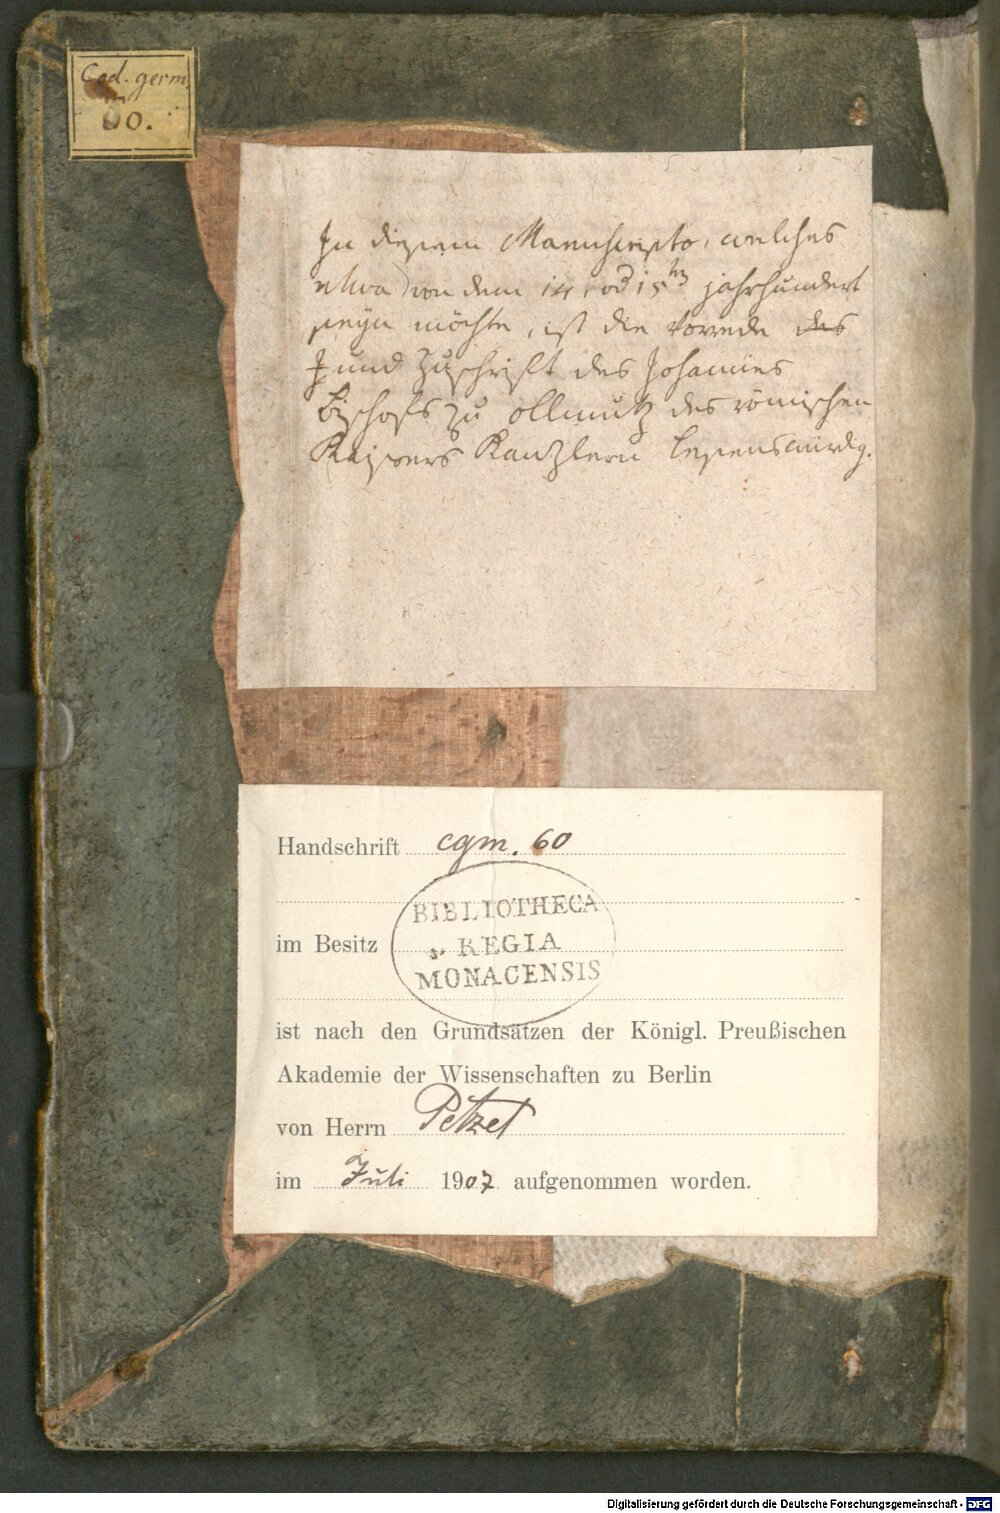 Cod. germ.
60.
In diesem Manuscripto, welches
etwa von dem 14. od 15tn jahrhundert
seyn möchte, ist die Vorrede des
und Zuschrift des Johannes
Bischofs zu ollmutz des römischen
Kaisers Kanzlern lesenswürdig.
Handschrift cgm. 60
BIBLIOTHECA
REGIA
MONACENSIS
im Besitz
ist nach den Grundsätzen der Königl. Preußischen
Akademie der Wissenschaften zu Berlin
von Herrn Petzet
im Juli 1907 aufgenommen worden.
Digitalisierung gefördert durch die Deutsche Forschungsgemeinschaft - DFG